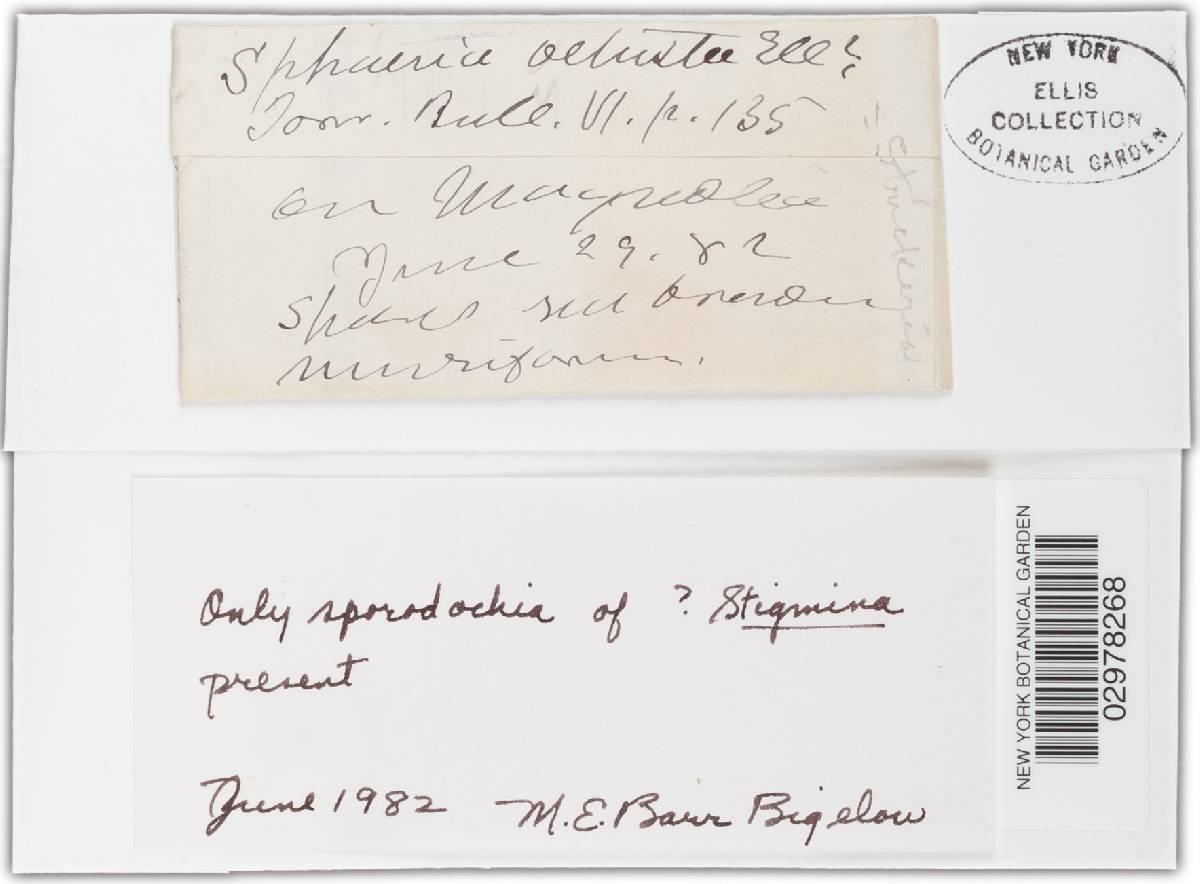 Sphaeria vetusta Ell?
Torr. Bull. VI. p. 135
on Magnolia
June 29. 82
Spores sub brown
muriform.
= Strickeria
NEW YORK
ELLIS
COLLECTION
BOTANICAL GARDEN
Only sporodochia of ? Stigmina
present
June 1982 M.E. Barr Bigelow
NEW YORK BOTANICAL GARDEN
02978268